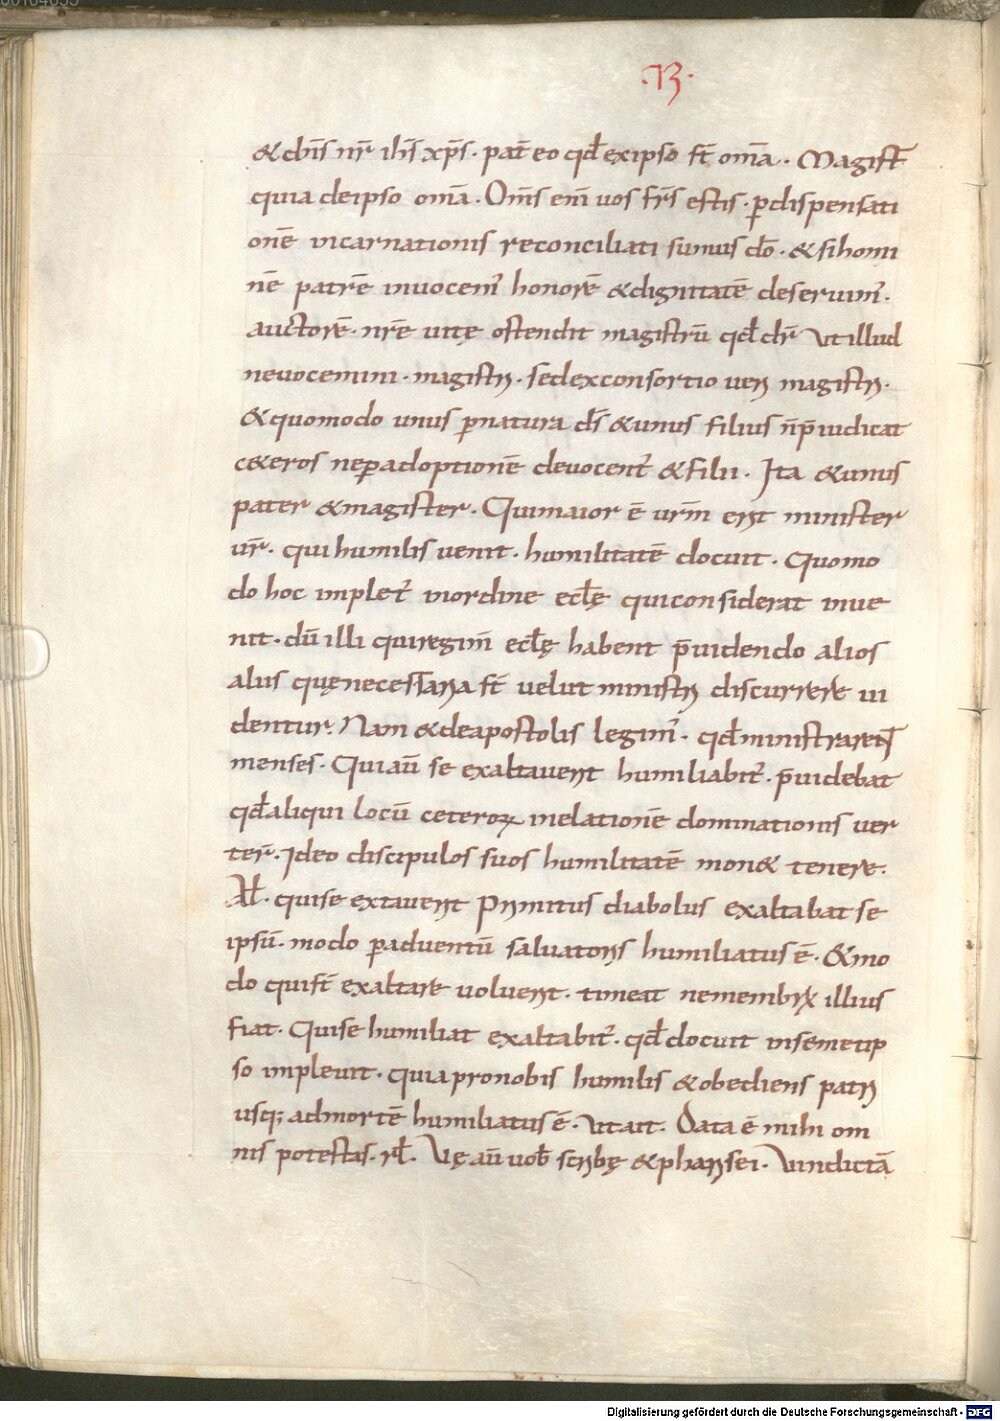 00104633
.73.
& dñs nr̄ ihs̄ xp̄s. pat̄ eo qd̄ ex ipso st̄ om̄a. Magist̄
quia de ipso om̄a. Om̄s eni᷒ uos fr̄s estis. ꝑ dispensati
onē incarnationis reconciliati sumus dō. & si homi
nē patrē inuocem᷒ honorē & dignitatē deserui᷒.
auctorē. nrē uitę ostendit magistrū qd̄ dr̄ Vt illud
ne uocemini. magistri. sed ex consortio ueri magistri.
& quomodo unus ꝑ natura ds̄ & unus filius n̄ p̄iudicat
c&eros ne ꝑ adoptionē deuocent᷒ & filii. Ita & unus
pater & magister. Qui maior ē urm̄ erit minister
ur̄. qui humilis uenit. humilitatē docuit. Quomo
do hoc implet᷒ in ordine eccl̄ę qui considerat inue
nit. dū illi qui regim̄ eccl̄ę habent p̄uidendo alios
aliis quę necessaria st̄ uelut ministri discurrere ui
dentur. Nam & de apostolis legim᷒. qd̄ ministrarent
menses. Qui aū se exaltauerit humiliabit᷒. p̄uidebat
qd̄ aliqui locū ceteroꝝ in elationē dominationis uer
ter̄. Ideo discipulos suos humilitatē mon& tenere.
Al̄. qui se extauerit Primitus diabolus exaltabat se
ipsū. modo ꝑ aduentū saluatoris humiliatus ē. & mo
do qui st̄ exaltare uoluerit. timeat ne membrū illius
fiat. Qui se humiliat exaltabit᷒. qd̄ docuit in semetip
so impleuit. quia pro nobis humilis & obediens patri
usq; ad mortē humiliatus ē. Vt ait. Data ē mihi om
nis potestas. rl̄. Vę aū uob̄ scribę & pharisei. Vindictā
Digitalisierung gefördert durch die Deutsche Forschungsgemeinschaft - DFG